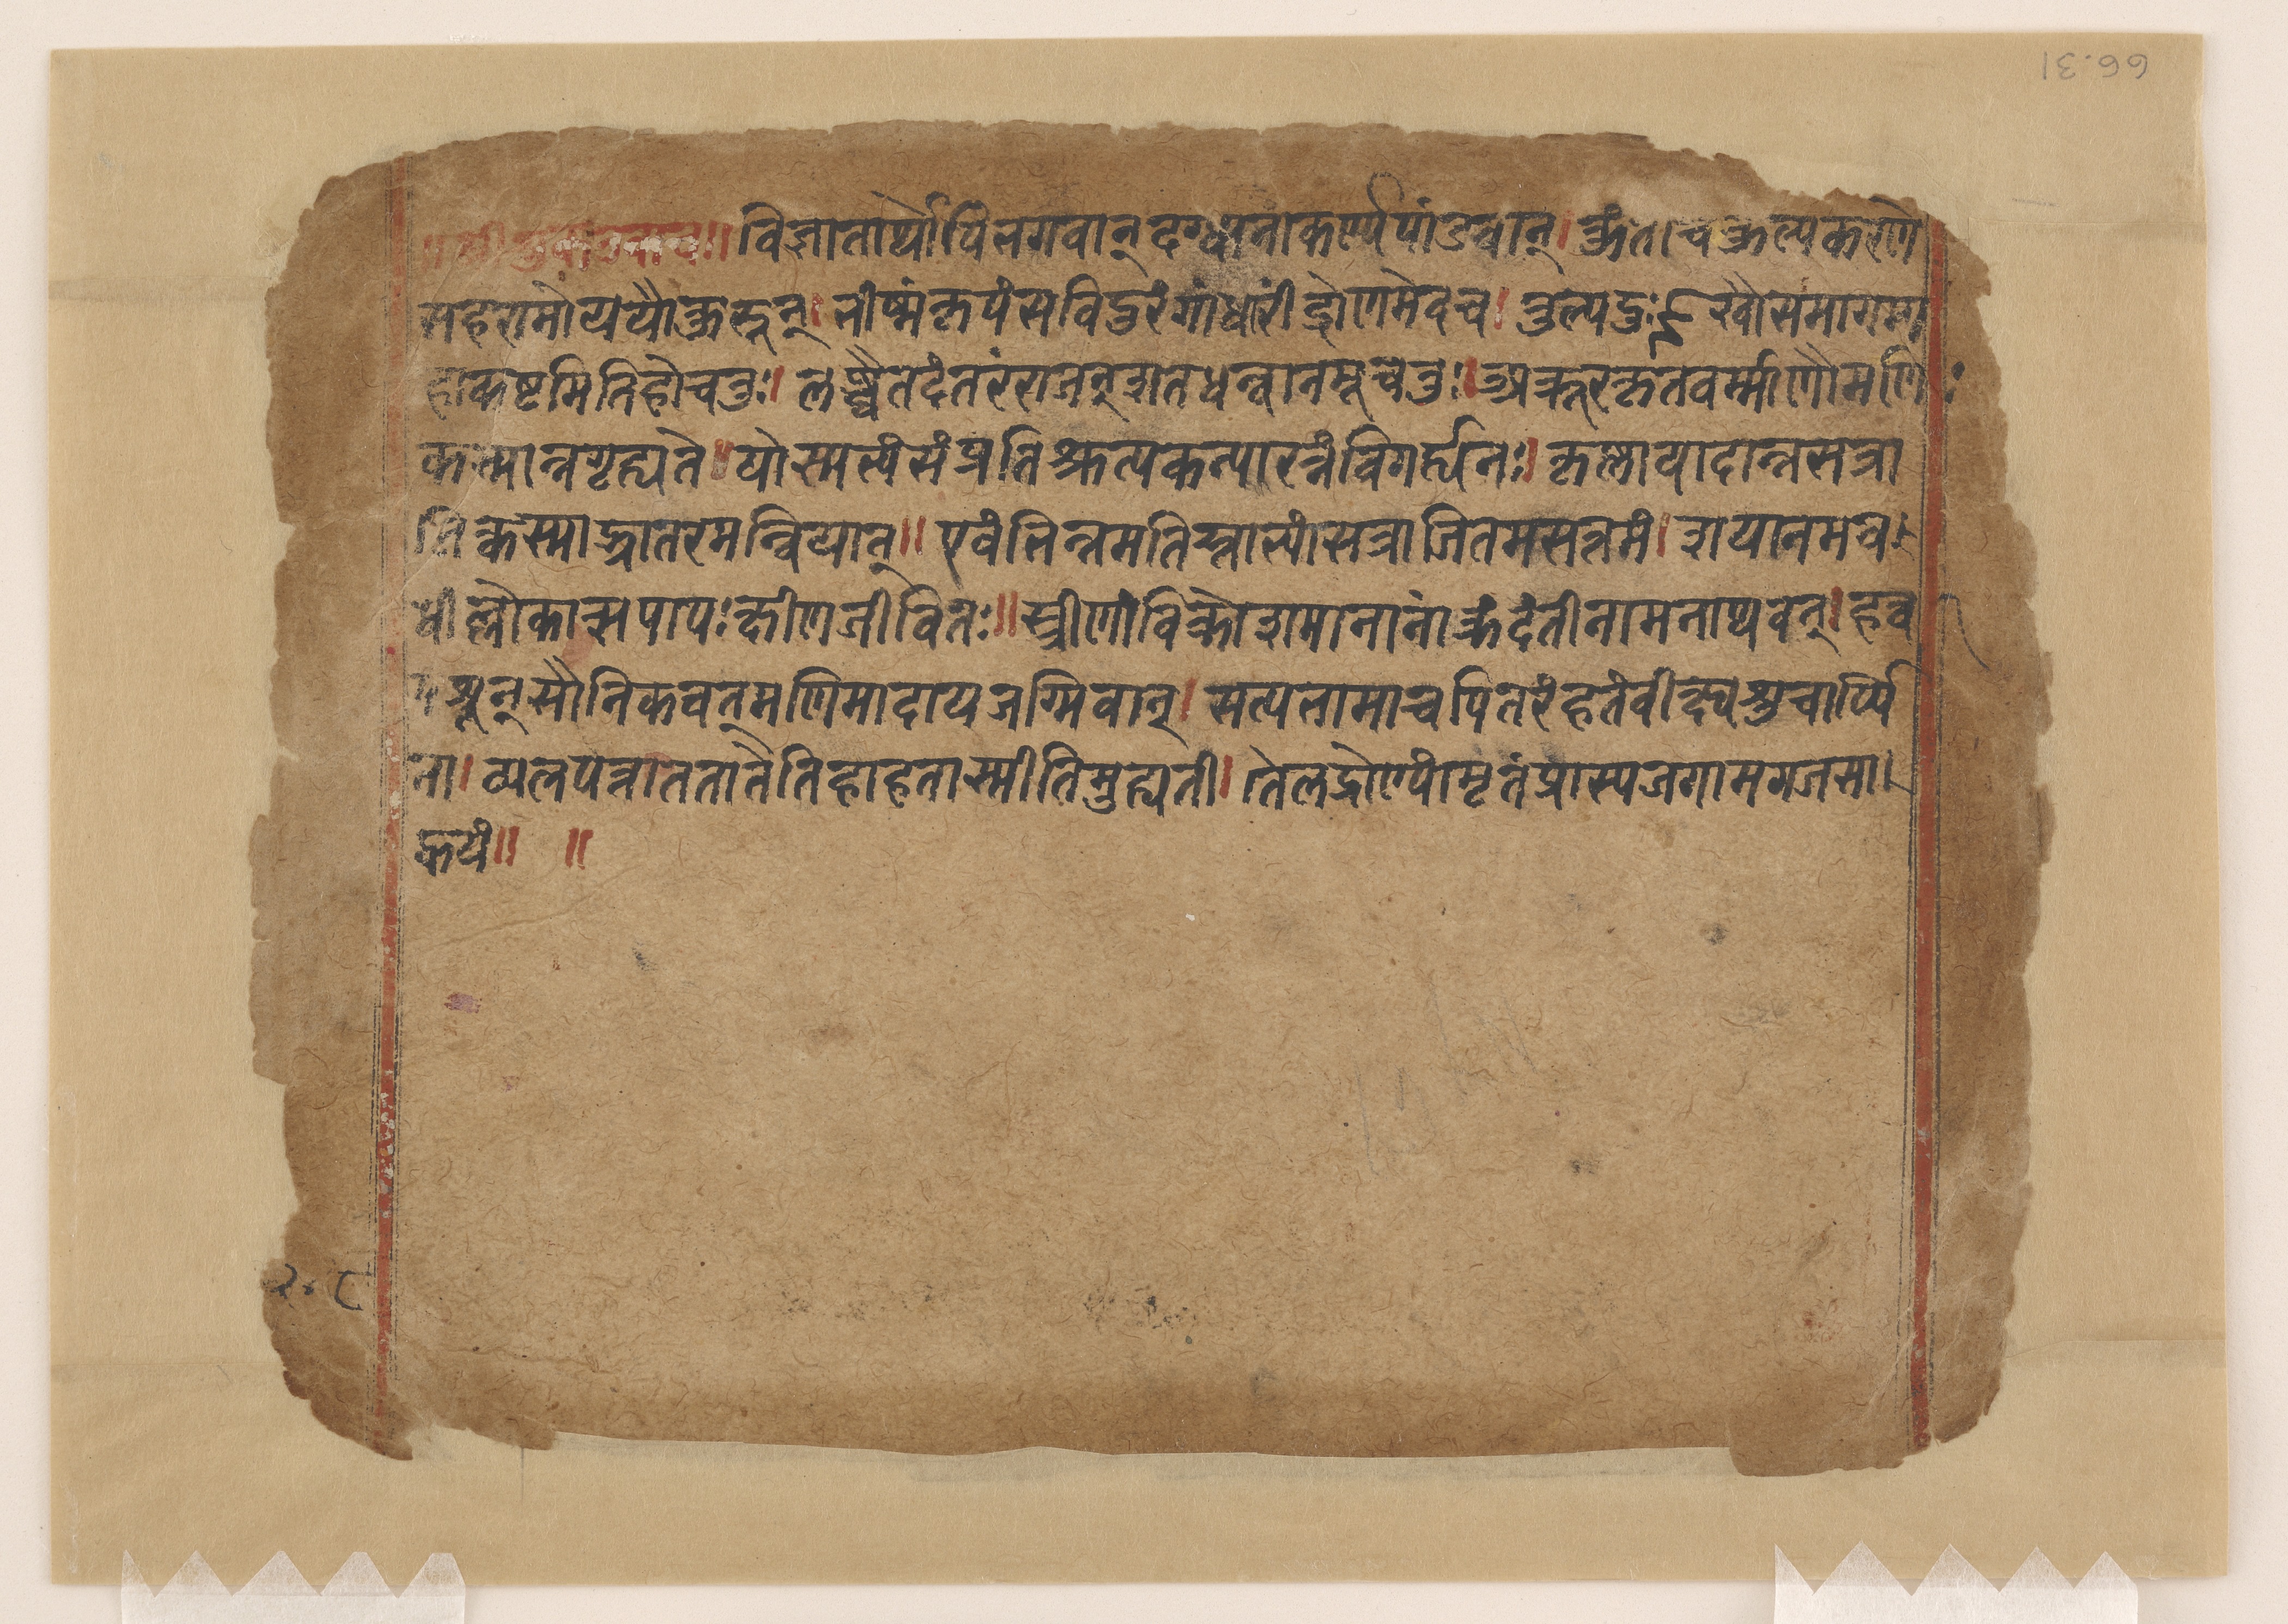 66.31
॥श्रीशुकउवाच॥विज्ञातार्थोपिभगवान्दग्धानाकर्ण्यपांडवान्।कुंतीचकुल्यकरणे
सहरामोययौकुरून्।भीष्मंकृपंसविदुरंगांधारींद्रोणमेवच।तुल्यदुःखौसमागम्य
हाकष्टमितिहोचतुः॥लब्ध्वैतदंतरंराजन्शतधन्वानमूचतुः॥अक्रूरकृतवर्म्माणौमणिः
कस्मान्नगृह्यते॥योस्मभ्यंसंप्रतिश्रुत्यकन्यारत्नंविगर्ह्यनः॥कृष्णायादान्नसत्रा
जिकस्माद्भ्रातरमन्वियात्॥एवंभिन्नमतिस्ताभ्यांसत्राजितमसत्तमं।शयानमव
धील्लोभात्सपापःक्षीणजीवितः॥स्त्रीणांविक्रोशमानानांक्रंदंतीनामनाथवत्।हत्व
पशून्सौनिकवत्मणिमादायजग्मिवान्।सत्यभामाचपितरंहतंवीक्ष्यशुचार्प्पि
ता।व्यलपत्तातततातेतिहाहतास्मीतिमुह्यती।तैलद्रोण्यांमृतंप्रास्यजगामगजसा
ह्वयं॥ ॥
२०८